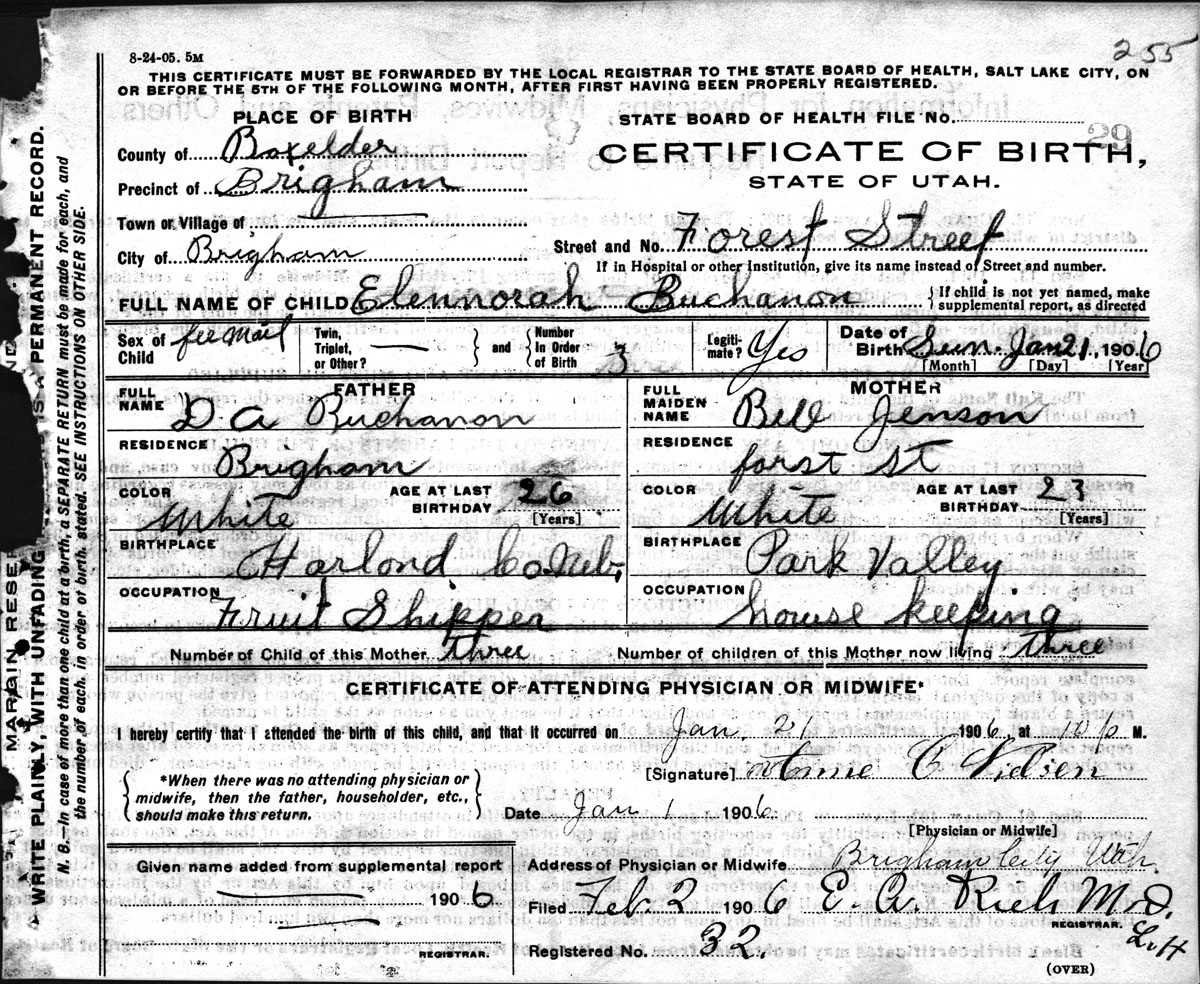 8-24-05. 5M
255
THIS CERTIFICATE MUST BE FORWARDED BY THE LOCAL REGISTRAR TO THE STATE BOARD OF HEALTH, SALT LAKE CITY, ON
OR BEFORE THE 5TH OF THE FOLLOWING MONTH, AFTER FIRST HAVING BEEN PROPERLY REGISTERED.
PLACE OF BIRTH
STATE BOARD OF HEALTH FILE No.
29
County of Boxelder
CERTIFICATE OF BIRTH,
Precinct of Brigham
STATE OF UTAH.
Town or Village of
City of Brigham
Street and No. Forest Street
If in Hospital or other Institution, give its name instead of Street and number.
FULL NAME OF CHILD Elennorah Buchanon
{ If child is not yet named, make
supplemental report, as directed
Sex of Child feeMail
Twin, Triplet, or Other? —
} and {
Number in Order of Birth 3
Legitimate? Yes
Date of Birth Sun. Jan 21, 1906
[Month] [Day] [Year]
FATHER
FULL NAME D. A Buchanon
RESIDENCE Brigham
COLOR White
AGE AT LAST BIRTHDAY 26
[Years]
BIRTHPLACE Harlond Co. Neb.
OCCUPATION Fruit Shipper
MOTHER
FULL MAIDEN NAME Bell Jenson
RESIDENCE forst St
COLOR White
AGE AT LAST BIRTHDAY 23
[Years]
BIRTHPLACE Park Valley
OCCUPATION house keeping
Number of Child of this Mother three
Number of children of this Mother now living three
CERTIFICATE OF ATTENDING PHYSICIAN OR MIDWIFE*
I hereby certify that I attended the birth of this child, and that it occurred on Jan. 21 1906 at 10 p M.
*When there was no attending physician or
midwife, then the father, householder, etc.,
should make this return.
[Signature] C Nielsen
Date Jan 1 1906
[Physician or Midwife]
Given name added from supplemental report
1906
REGISTRAR.
Address of Physician or Midwife Brigham City Utah.
Filed Feb. 2 1906 E. A. Rich M.D.
REGISTRAR.
L.H
Registered No. 32.
(OVER)
WRITE PLAINLY, WITH UNFADING
IS A PERMANENT RECORD.
N. B.—In case of more than one child at a birth, a SEPARATE RETURN must be made for each, and
the number of each, in order of birth, stated. SEE INSTRUCTIONS ON OTHER SIDE.